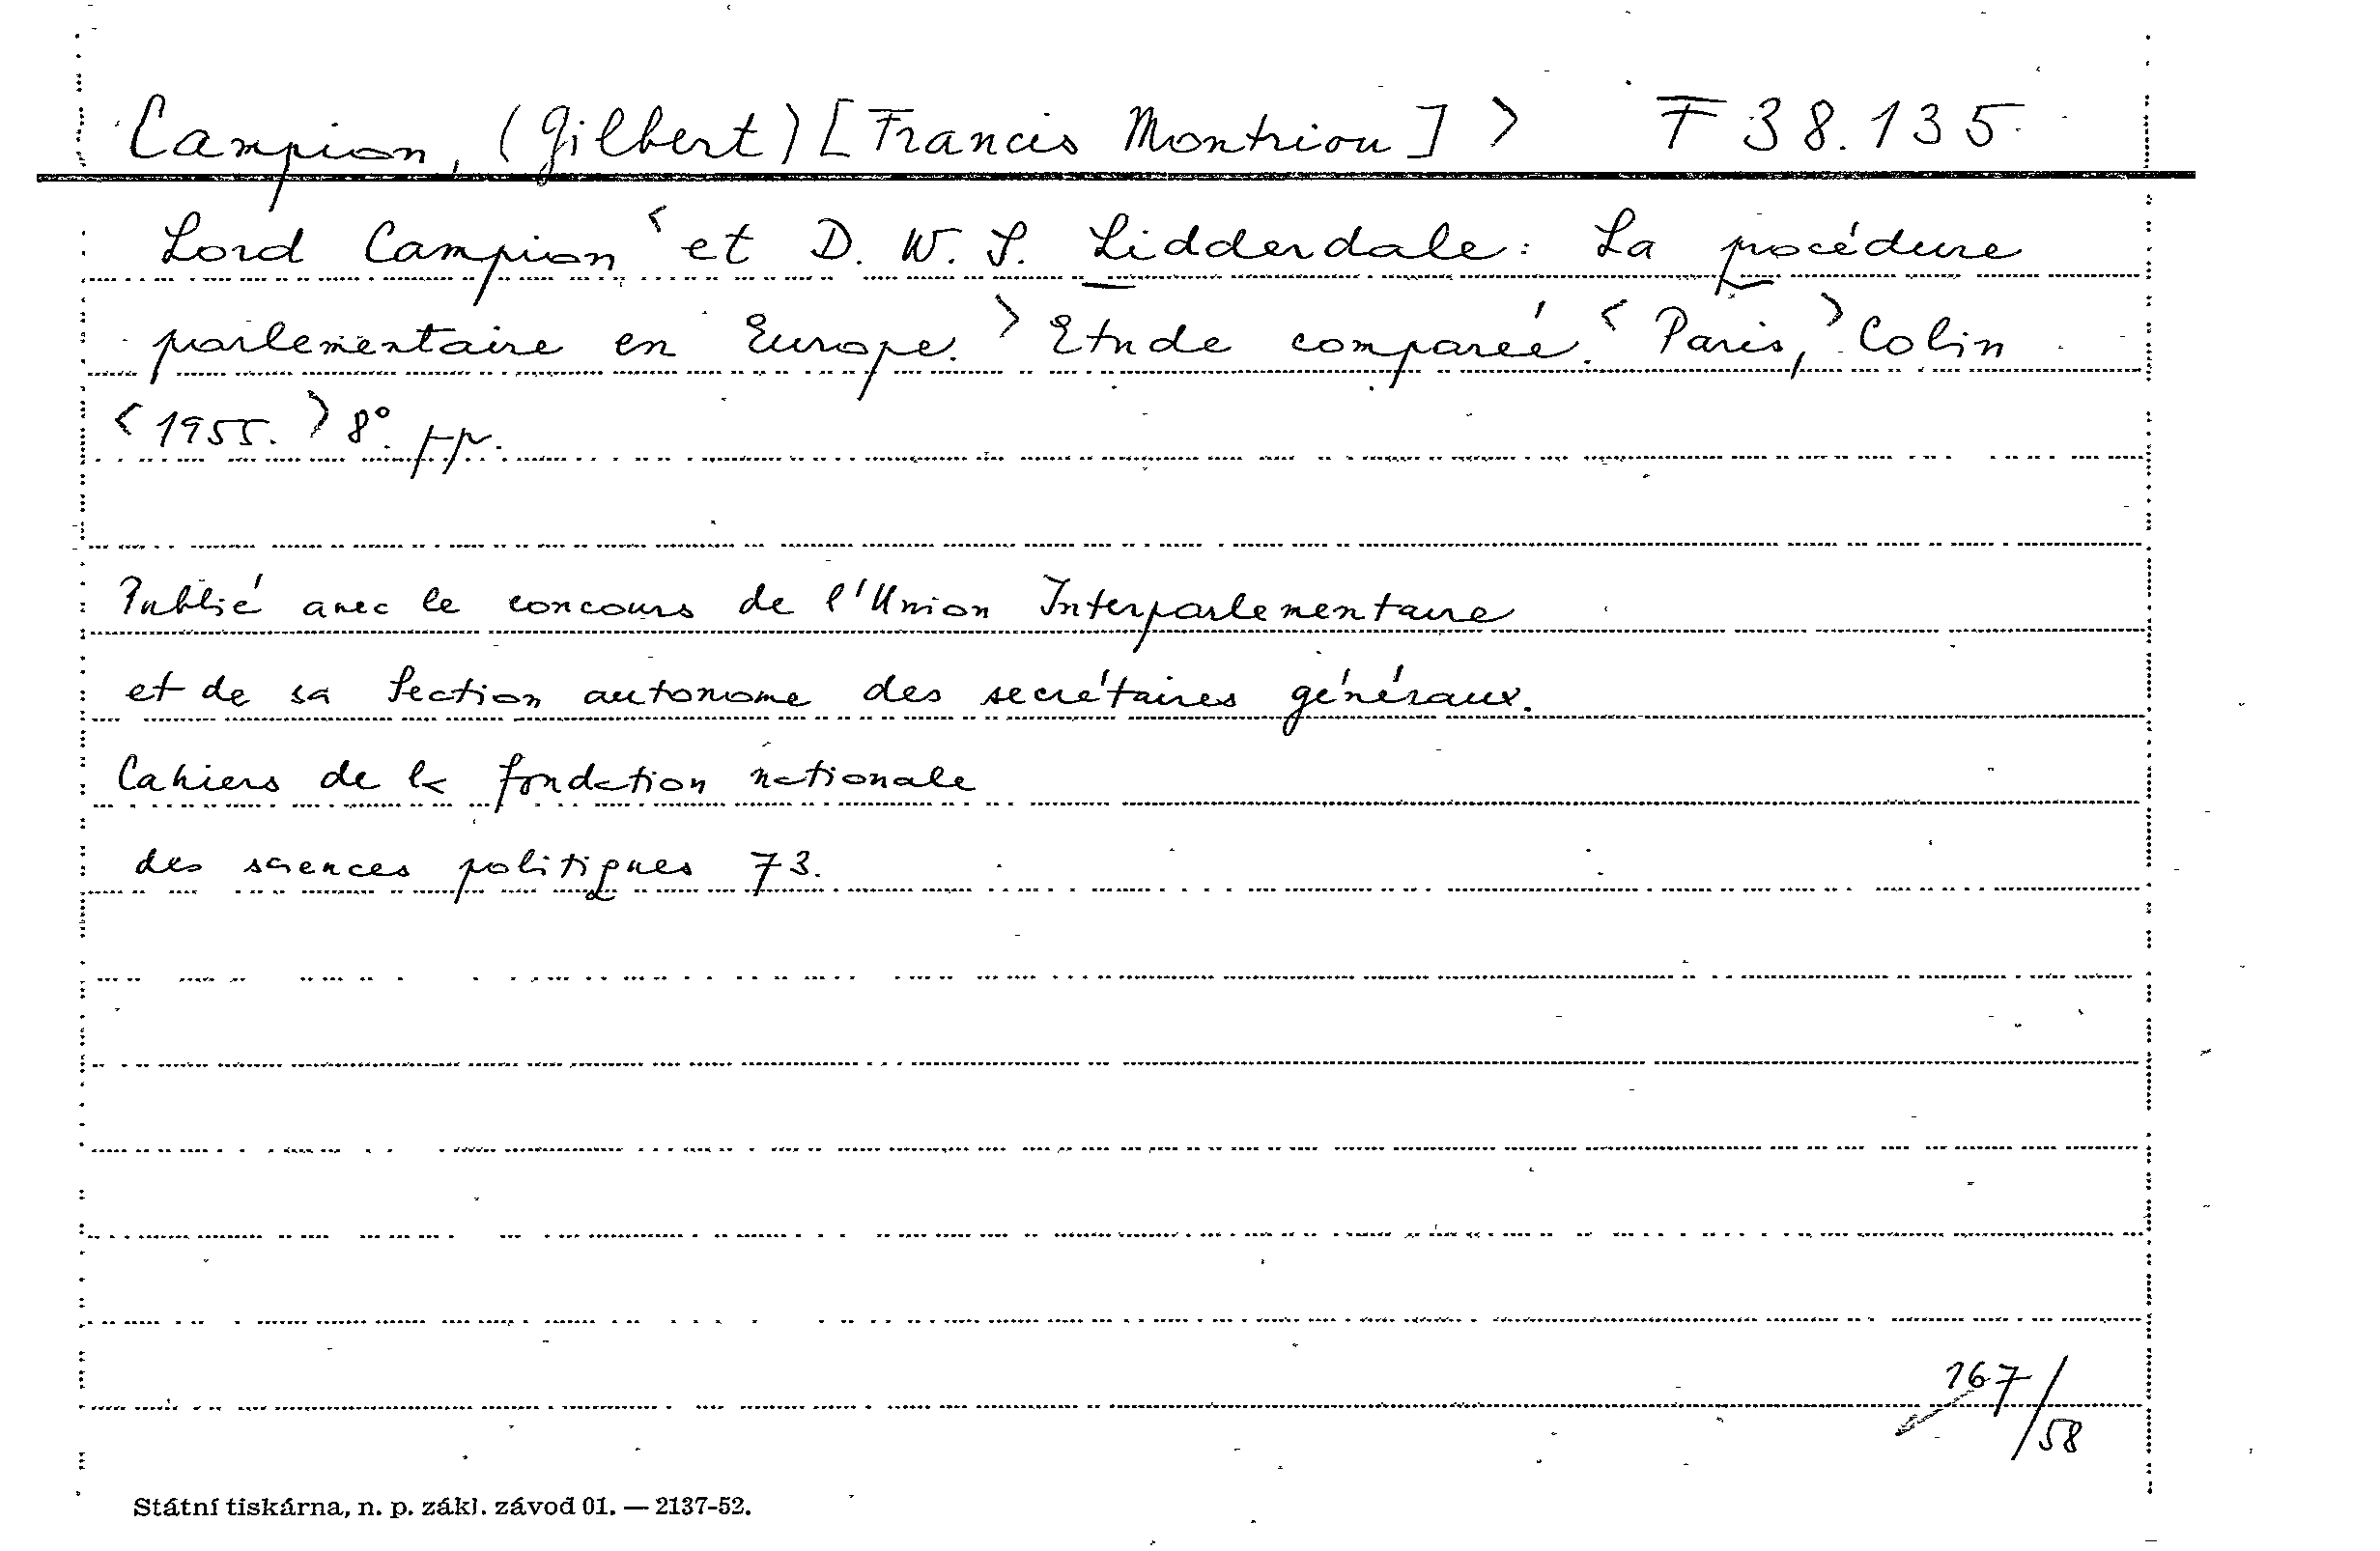 Campion, (Gilbert) [Francis Montriou] > F 38.135
Lord Campion < et D. W. S. Lidderdale: La procédure
parlementaire en Europe. > Etude comparée. < Paris, > Colin
< 1955. > 8°. pp.
Publié avec le concours de l'Union Interparlementaire
et de sa Section autonome des secrétaires généraux.
Cahiers de la fondation nationale
des sciences politiques 73.
167/58
Státní tiskárna, n. p. zákl. závod 01. — 2137-52.